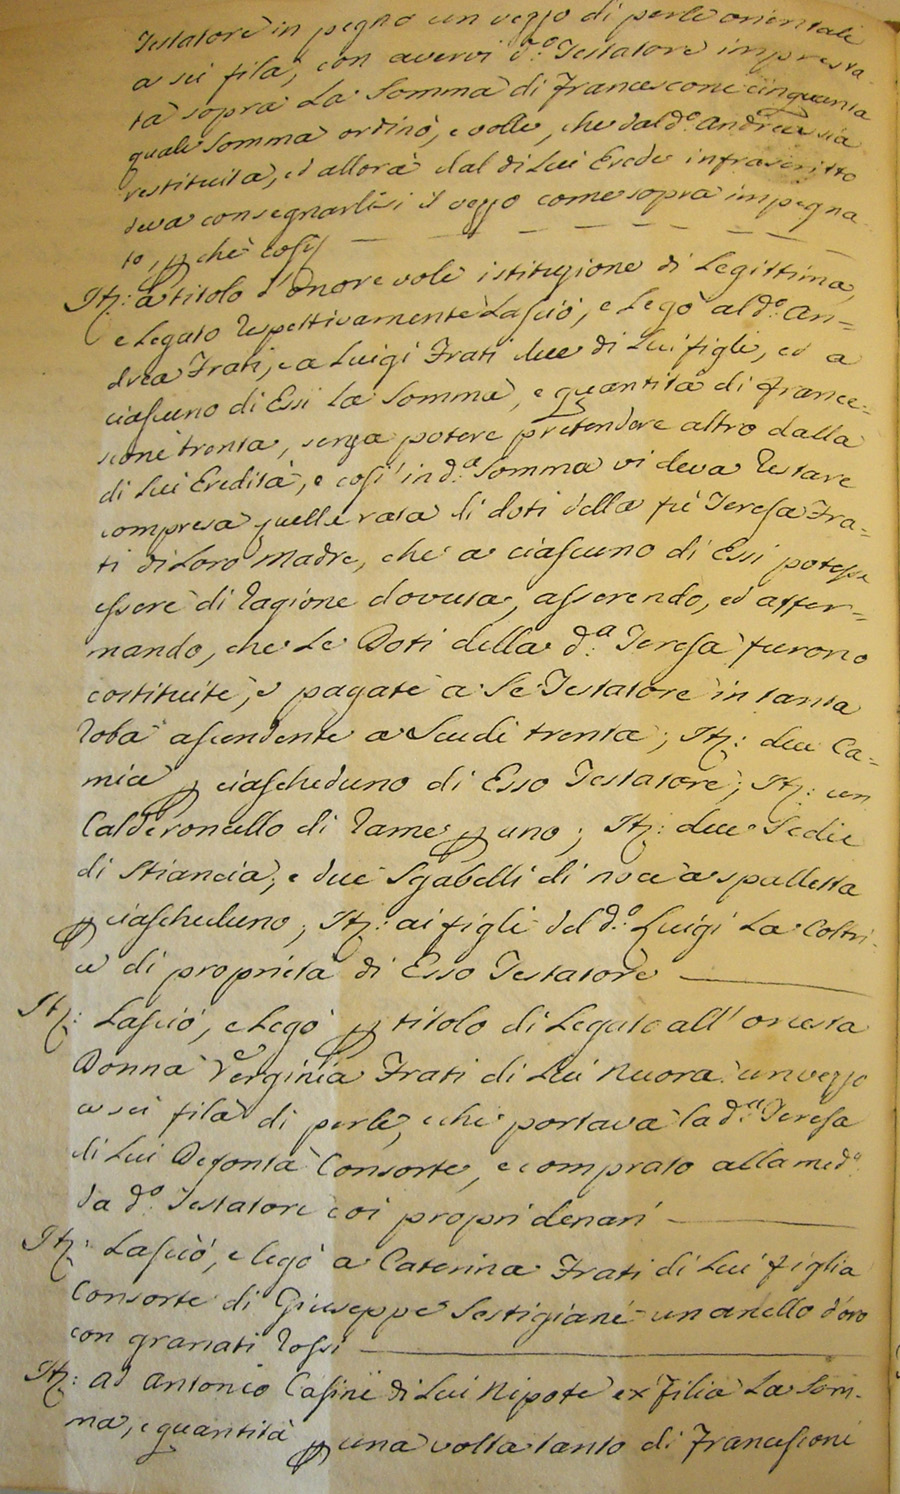 Testatore in pegno un vezzo di perle orientali
a sei fila, con avervi d.º Testatore impresta-
ta sopra La Somma di Francesconi cinquanta
quale Somma ordinò, e volle, che dal d.º Andrea sia
restituita, ed allora dal di Lui Erede infrascritto
deva consegnarlisi il vezzo come sopra impegna-
to, p chè così
Itz: a titolo d'onorevole istituzione di Legittima,
e Legato respettivamente Lasciò, e Legò al d.º An=
drea Frati, e a Luigi Frati due di Lui figli, ed a
ciascuno di Essi La Somma, e quantità di France=
sconi trenta, senza potere pretendere altro dalla
di Lui Eredità, e così in d.ª Somma vi deva restare
compresa quella rata di doti della fù Teresa Fra=
ti di Loro Madre, che a ciascuno di Essi potesse
essere di ragione dovuta, asserendo, ed affer=
mando, che Le Doti della d.ª Teresa furono
costituite, e pagate a Se Testatore in tanta
roba ascendente a Scudi trenta; Itz: due Ca=
mia p ciascheduno di Esso Testatore; Itz: un
Calderoncello di rame p uno; Itz: due Sedie
di Stiancia, e due Sgabelli di noce a spalletta
p ciascheduno; Itz: ai figli del d.º Luigi La Coltri-
ce di proprietà di Esso Testatore
Itz: Lasciò, e Legò p titolo di Legato all'onesta
Donna Verginia Frati di Lui Nuora un vezzo
a sei fila di perle, che portava la d.ª Teresa
di Lui Defonta Consorte, e comprato alla med.ª
da d.º Testatore coi propri denari
Itz: Lasciò, e legò a Caterina Frati di Lui figlia
Consorte di Giuseppe Sestigiani un anello d'oro
con granati rossi
Itz: Ad Antonio Casini di Lui Nipote ex Filia La Som-
ma, e quantità p una volta tanto di Francesconi